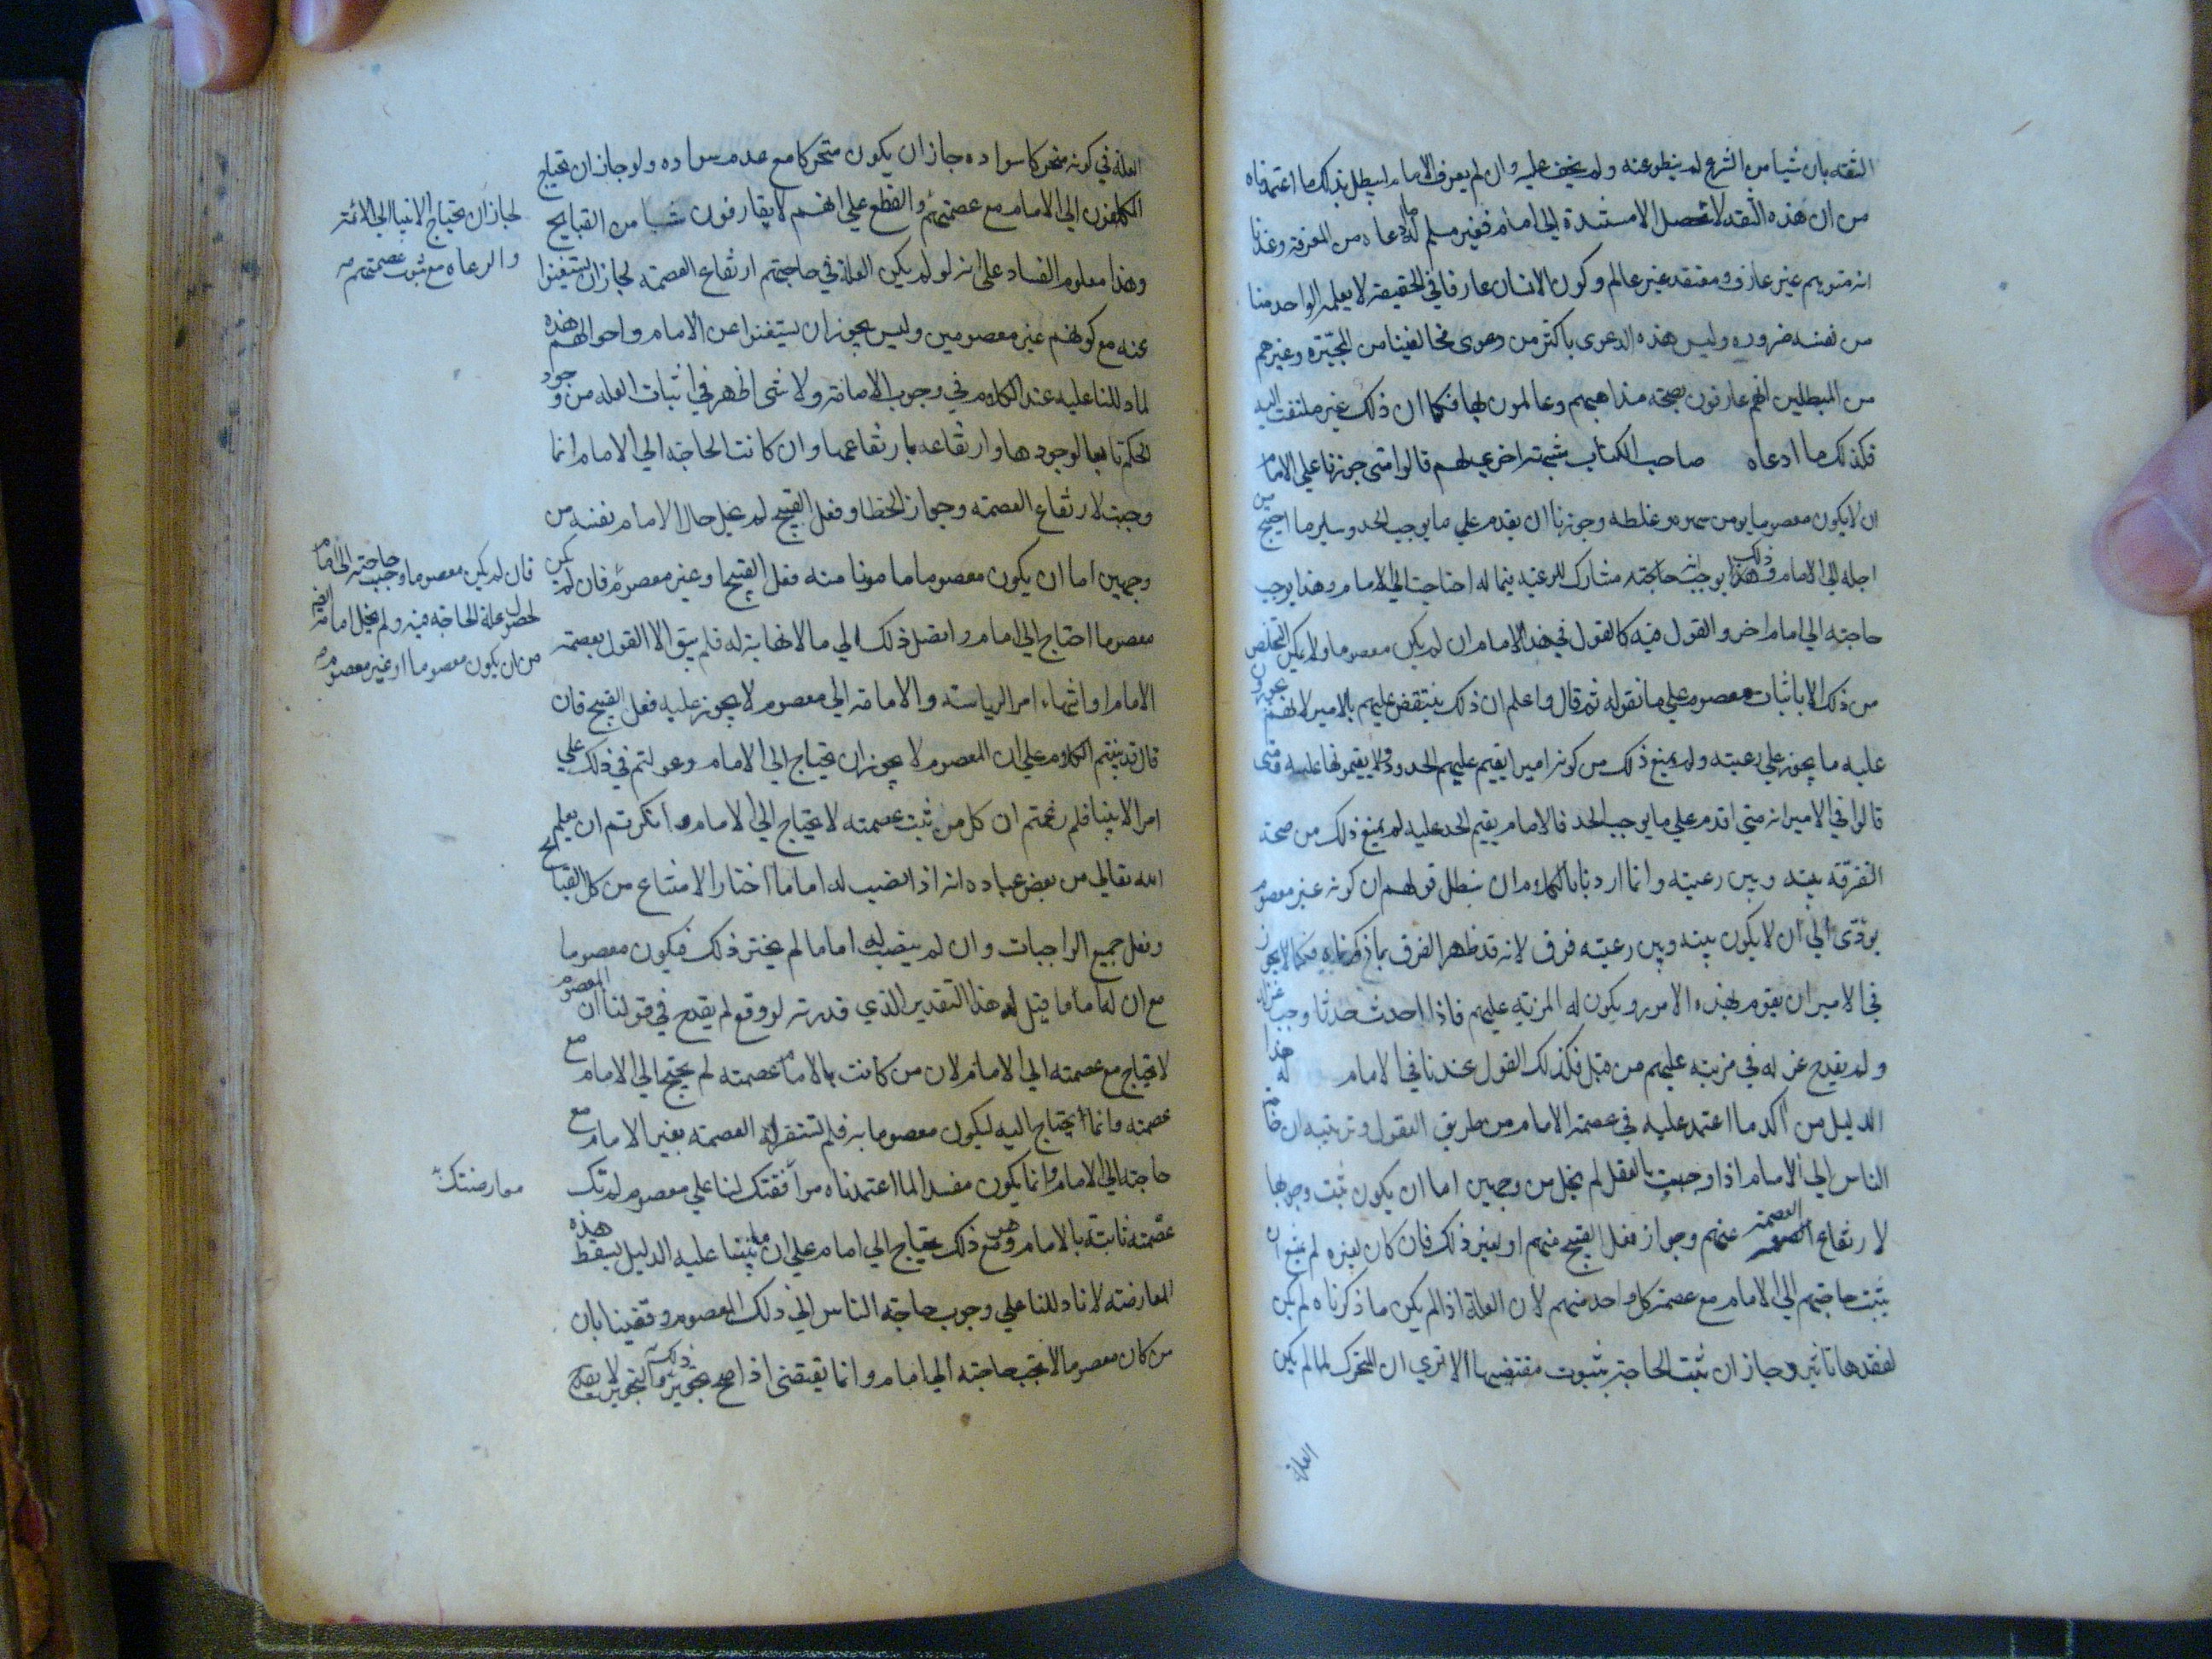 الثقة بان شيا من الشرع لم ينطو عنه ولم يخف عليه وان لم يعرف الامام ابطل بذلك ما اعتمدناه
من ان هذه الثقه لا تحصل الا مستندة الى امام فغير مسلم له ما ادعاه من المعرفة وعندنا
انه متوهم غير عارف ومعتقد غير عالم وكون الانسان عارفا في الحقيقة لا يعلمه الواحد منا
من نفسه ضروره وليس هذه الدعوى باكثر من دعوى مخالفينا من المجبّرة وغيرهم
من المبطلين انهم عارفون بصحة مذاهبهم وعالمون بها فكما ان ذلك غير ملتفت اليه
فكذلك ما ادعاه صاحب الكتاب شبهة اخرى لهم قالوا متى جوزنا على الامام
ان لا يكون معصوما يومن سهوه وغلطه وجوزنا ان يقدم على ما يوجب الحد وساير ما احتيج من
اجله الى الامام وذلك يوجب انه حاجته مشارك للرعية فيما له احتاجت الى الامام وهذا يوجب
حاجته الى امام اخر والقول فيه كالقول في هذا الامام ان لم يكن معصوما ولا يمكن التخلص
من ذلك الا باثبات معصوم على ما نقوله ثم قال واعلم ان ذلك ينتقض عليهم بالامير لانهم يجوزون
عليه ما يجوز على رعيته ولم يمنع ذلك من كونه اميرا يقيم عليهم الحدود ولا يقيمونها عليه فمتى
قالوا في الامير انه متى اقدم على ما يوجب الحد فالامام يقيم الحد عليه لم يمنع ذلك من صحة
التفرقة بينه وبين رعيته وانما اردنا بالكلام ان نبطل قولهم ان كونه غير معصوم
يودّى الى ان لا يكون بينه وبين رعيته فرق لانه قد ظهر الفرق بما ذكرناه فكما لا يجوز
في الامير ان يقوم بهذه الامور ويكون له المزية عليهم فاذا احدث حدثا وجب عزله
ولم يقدح عزله في مزيته عليهم من قبل فكذلك القول عندنا في الامام هذا
الدليل من آكد ما اعتمد عليه في عصمة الامام من طريق العقول وترتيبه ان حاجة
الناس الى الامام اذا وجبت بالعقل لم يخل من وجهين اما ان يكون ثبت وجوبها
لارتفاع العصمة عنهم وجواز فعل القبيح منهم او لغير ذلك فان كان لغيره لم يمنع ان
يثبت حاجتهم الى الامام مع عصمة كل واحد منهم لان العلة اذا لم يكن ما ذكرناه لم يكن
لفقدها تاثير وجاز ان تثبت الحاجة بثبوت مقتضيها الا ترى ان المتحرك لما لم يكن
العلة
العلة في كونه متحركا سواده جاز ان يكون متحركا مع عدم سواده ولو جاز ان يحتاج
المكلفون الى الامام مع عصمتهم والقطع على انهم لا يقارفون شيا من القبايح
لجاز ان يحتاج الانبيا الى الائمة
والرعاة مع ثبوت عصمتهم
وهذا معلوم الفساد على انه لو لم يكن العلة في حاجتهم ارتفاع العصمة لجاز ان يستغنوا
عنه مع كونهم غير معصومين وليس يجوز ان يستغنوا عن الامام واحوالهم هذه
لما دللنا عليه عند الكلام في وجوب الامامة ولا شى اظهر في اثبات العله من وجود
الحكم تابعا لوجودها وارتفاعه بارتفاعها وان كانت الحاجة الى الامام انما
وجبت لارتفاع العصمة وجواز الخطا وفعل القبيح لم يخل حال الامام نفسه من
وجهين اما ان يكون معصوما مامونا منه فعل القبيح او غير معصوم فان لم يكن
فان لم يكن معصوما وجبت حاجته الى امام
لحصول علة الحاجة فيه ولم يخل امامه ايضا
من ان يكون معصوما او غير معصوم
معصوما احتاج الى امام واتصل ذلك الى ما لا نهاية له فلم يبق الا القول بعصمة
الامام او انتهاء امر الرياسة والامامة الى معصوم لا يجوز عليه فعل القبيح فان
قال قد بنيتم الكلام على ان المعصوم لا يجوز ان يحتاج الى الامام وعولتم في ذلك على
امر الانبيا فلم زعمتم ان كل من ثبت عصمته لا يحتاج الى الامام وما انكرتم ان يعلم
الله تعالى من بعض عباده انه اذا نصب له اماما اختار الامتناع من كل القبايح
وفعل جميع الواجبات وان لم ينصب له اماما لم يختر ذلك فيكون معصوما
مع ان له اماما قيل له هذا التقدير الذي قدرته لو وقع لم يقدح في قولنا ان المعصوم
لا يحتاج مع عصمته الى الامام لان من كانت بالامام عصمته لم يحتج الى الامام مع
عصمته وانما يحتاج اليه ليكون معصوما به فلم تستقر له العصمة بغير الامام مع
حاجته الى الامام وانما يكون مفسدا لما اعتمدناه موافقتك لنا على معصوم لم تك
معارضتك
عصمته ثابتة بالامام وهو مع ذلك يحتاج الى امام على ان ما بنينا عليه الدليل يسقط هذه
المعارضة لانا دللنا على وجوب حاجة الناس الى ذلك المعصوم وقضينا بان
من كان معصوما لا تجب حاجته الى امام وانما يقتضى اذا صح تجويز ذلك والتجويز لا يقدح